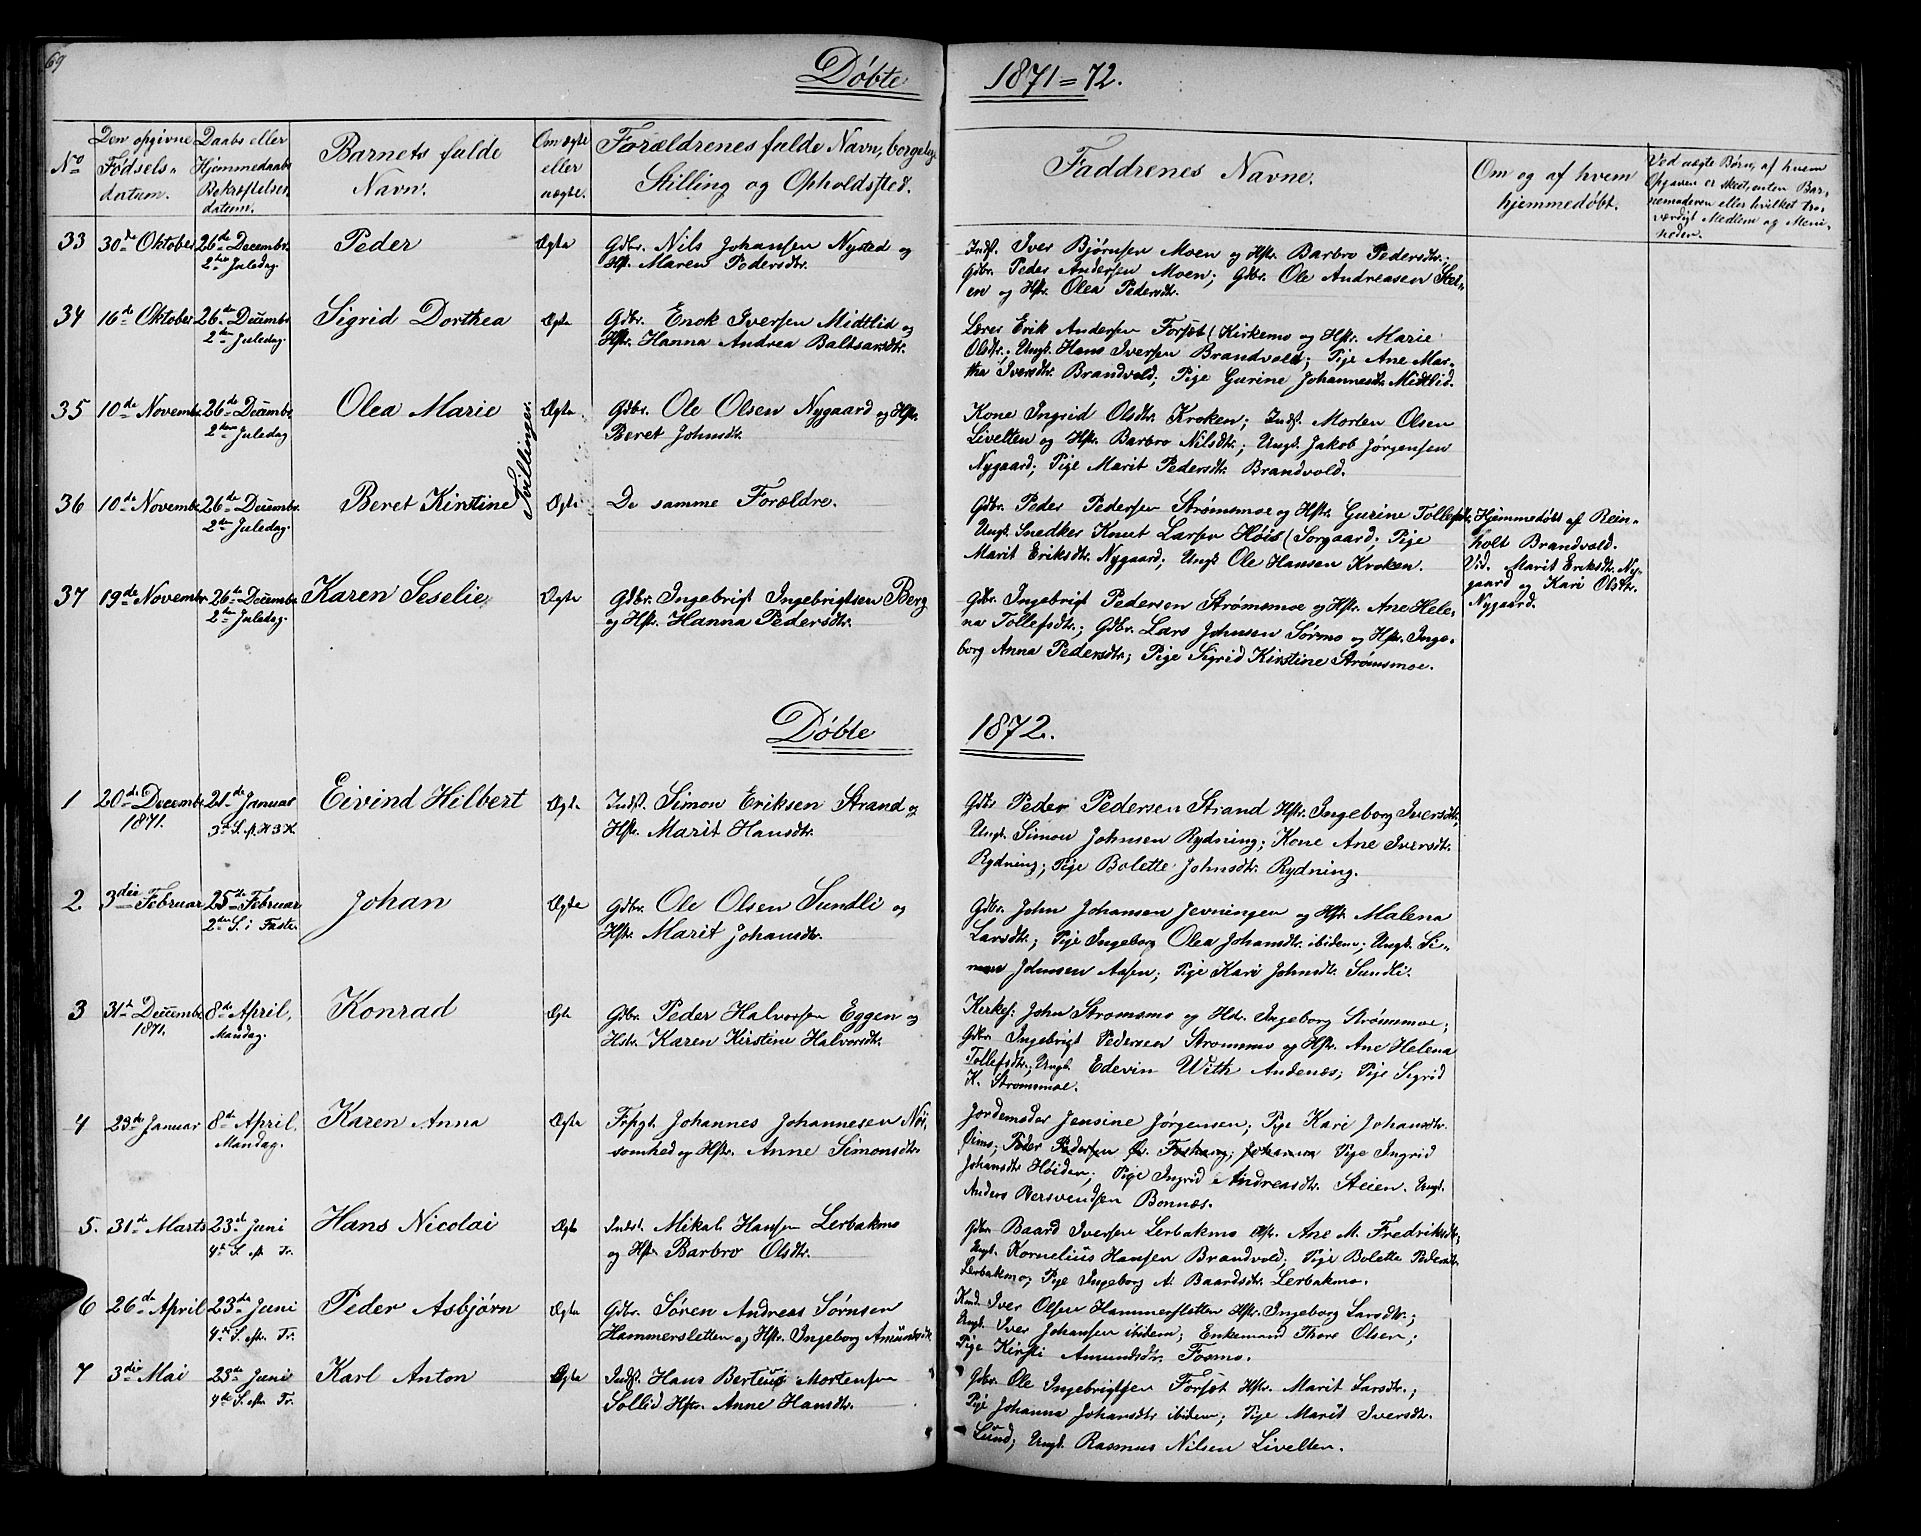 69
Døbte 1871=72.
No
Den opgivne Fødsels-datum.
Daabs eller Hjemmedaabs Bekræftelses datum.
Barnets fulde Navn.
Om ægte eller uægte.
Forældrenes fulde Navn, borgelige Stilling og Opholdsted.
Faddrenes Navne.
Om og af hvem hjemmedøbt.
Ved uægte Børn, af hvem Opgaven er skeet, enten Barnemoderen eller hvilket troværdigt Medlem og Menigheden.
33 30de Oktober 26de Decembr. 2den Juledag. Peder Ægte
Gdbr. Nils Johansen Nysted og
Hst. Maren Pedersdtr.
Indst. Iver Bjørnsen Moen og Hstr. Barbro Pedersdtr.;
Gdbr. Peder Andersen Moen; Gbr. Ole Andreasen Stel-
en og Hstr. Olea Pedersdtr.
34 16de Oktober 26de Decembr 2den Juledag. Sigrid Dorthea Ægte
Gdbr. Enok Iversen Midtlid og
Hstr. Hanna Andrea Baltsarsdtr.
Lærer Erik Andersen Forsøt (Kirkemo og Hstr. Marie
Olsdtr.; Ungk. Hans Iversen Brandvold; Pige Ane Mar-
tha Iversdtr. Brandvold; Pige Gurine Johannesdtr. Midtlid.
35 10de Novembr 26de Decembr 2den Juledag Olea Marie Ægte
Tvillinger.
Gdbr. Ole Olsen Nygaard og Hstr.
Beret Johnsdtr.
Kone Ingrid Olsdtr. Kroken; Indst. Morten Olsen
Livelten og Hstr. Barbro Nilsdtr.; Ungk. Jakob Jørgensen
Nygaard; Pige Marit Pedersdtr. Brandvold.
36 10de Novembr 26de Decembr. 2den Juledag. Beret Kirstine Ægte
De samme Forældre.
Gdbr. Peder Pedersen Strømsmoe og Hstr. Gurine Tollefsdtr.
Ungk. Snedker Knut Larsen Høiś (Sorgaard; Pige
Marit Eriksdtr. Nygaard; Ungk Ole Hansen Kroken.
Hjemmedøbt af Rein-
holt Brandvold.
Vid. Marit Eriksdtr. Ny-
gaard og Kari Olsdtr.
Nygaard.
37 19de Novembr 26de Decembr 2den Juledag. Karen Seselie Ægte
Gdbr. Ingebrigt Ingebrigtsen Berg
og Hstr. Hanna Pedersdtr.
Gdbr. Ingebrigt Pedersen Strømsmoe og Hstr. Ane Hele-
na Tollefsdtr.; Gdbr. Lars Johnsen Sørmo og Hstr. Inge-
borg Anna Pedersdtr; Pige Sigrid Kirstine Strømsmoe.
Døbte 1872.
1 20de Decembr 1871. 21de Januar 3d S. f. H 3 K. Eivind Hilbert Ægte
Indst. Simon Eriksen Strand og
Hstr. Marit Hansdtr.
Gdbr Peder Pedersen Strand Hstr. Ingeborg Iversdtr.,
Ungk. Simon Johnsen Rydning; Kone Ane Iversdtr.
Rydning; Pige Bolette Johnsdtr. Rydning.
2. 3die Februar 25de Februar 2den S. i Faste. Johan Ægte
Gdbr. Ole Olsen Sundli og
Hstr. Marit Johansdtr.
Gdbr. John Johansen Jevningen og Hstr Malena
Larsdtr.; Pige Ingeborg Olea Johansdtr. ibidem; Ungk. Si-
mon Johnsen Aasen; Pige Kari Johnsdtr. Sundli.
3 31te Decembr 1871. 8de April, Mandag. Konrad Ægte
Gdbr. Peder Halvorsen Eggen og
Hstr. Karen Kirstine Halvorsdtr.
Kirkes: John Stromsmo og Hstr. Ingeborg Strømsmoe;
Gdbr. Ingebrigt Pedersen Stromsmo og Hstr. Ane Helena
Tollefsdtr.; Ungk. Edevin With Andenæs; Pige Sigrid
K. Stromsmoe.
4 29de Januar 8de April, Mandag. Karen Anna Ægte
Frpgt. Johannes Johannesen Nøi-
somhed og Hstr. Anne Simonsdtr.
Jordemoder Jensine Jørgensen; Pige Kari Johansdtr.
Øimo; Peder Pedersen Ør. Foshaug; Johannes Pige Ingrid
Johansdtr Høiden; Pige Ingrid Andreasdtr. Steien. Ungk.
Anders Bersvendsen Bonnæs.
5. 31de Marts 23d Juni 4de S. eftr Tr. Hans Nicolai Ægte
Indst. Mikal Hansen Lerbakmo
og Hstr Barbro Olsdtr.
Gdbr Baard Iversen Lerbakmo Hstr. Ane M. Fredriksdtr;
Ungk. Kornelius Hansen Brandvold; Pige Bolette Pedersdtr
Lerbakmo, Pige Ingeborg A. Baardsdtr. Lerbakmo.
6 26de April 23de Juni 4de S. eftr. Tr. Peder Asbjørn Ægte
Gdbr. Søren Andreas Sørnsen
Hammersletten og Hstr. Ingeborg Amundsdtr
Kaad. Iver Olsen Hammersletten Hstr. Ingeborg Larsdtr.;
Ungk. Iver Johansen ibidem; Enkemand Thore Olsen;
Pige Kirsti Amundsdtr. Fosmo.
7 3die Mai 23de Juni 4de S. eftr. Tr. Karl Anton Ægte
Indst. Hans Berteus Mortensen
Sollid Hstr. Anne Hansdtr.
Gdbr. Ole Ingebrigtsen Forsøt Hstr. Marit Larsdtr.;
Pige Johanna Johansdtr ibidem; Pige Marit Iversdtr.
Lund; Ungk. Rasmus Nilsen Livelten.